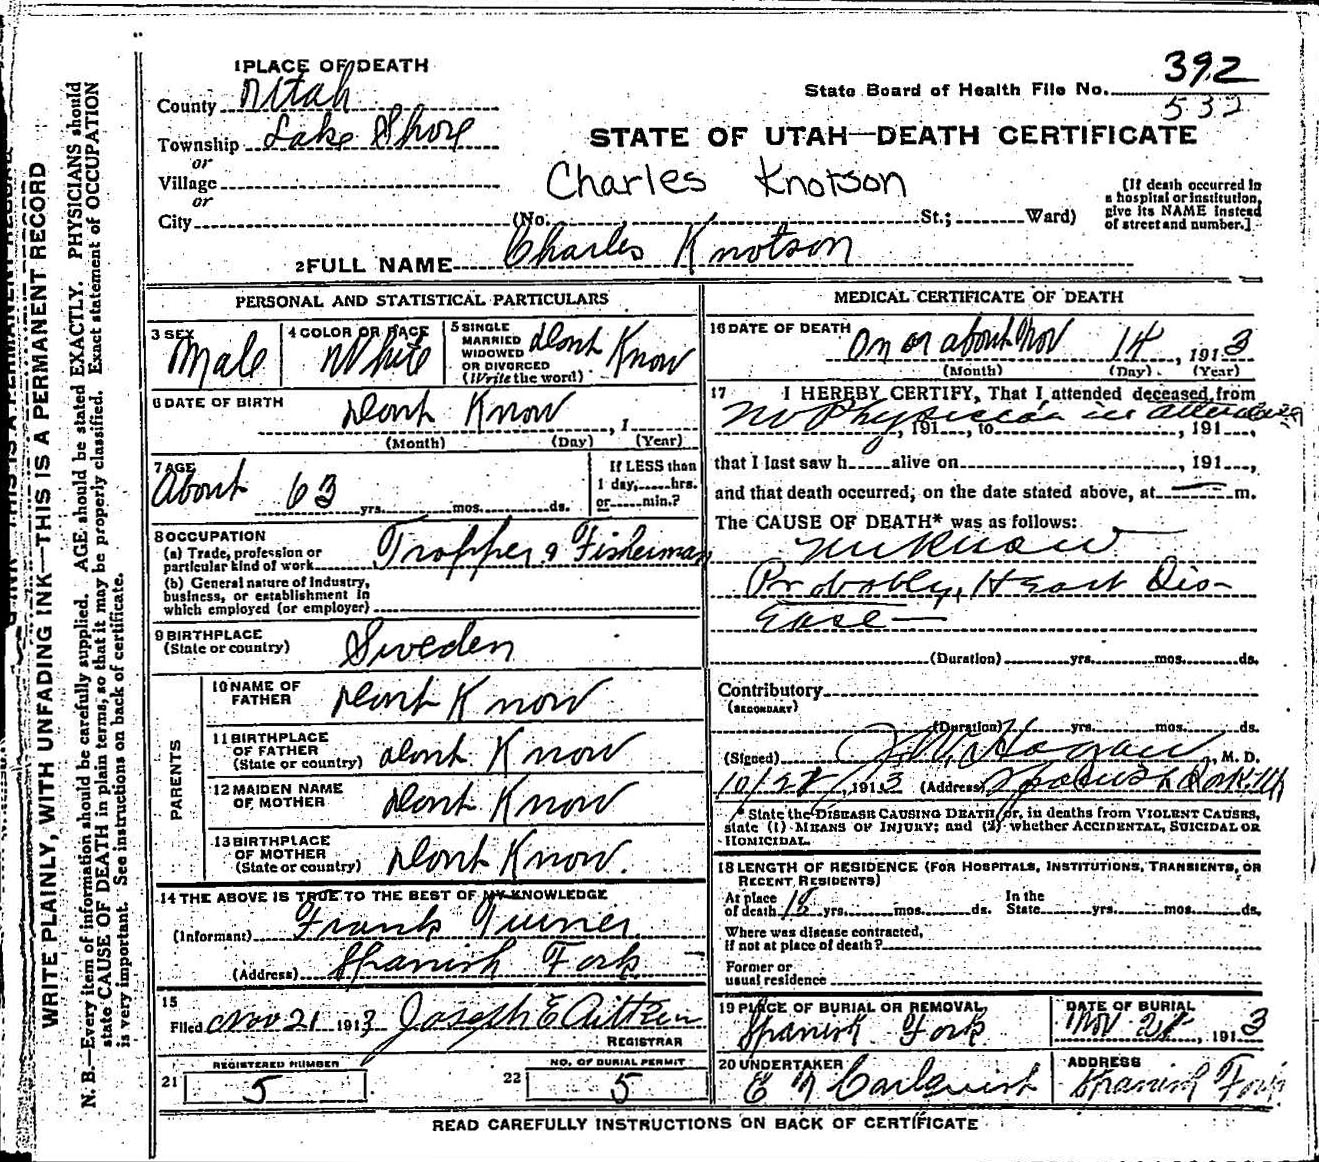 1 PLACE OF DEATH
County Utah
Township Lake Shore
or
Village
or
City
State Board of Health File No. 392
532
STATE OF UTAH—DEATH CERTIFICATE
Charles Knotson
(No. St.; Ward)
[If death occurred in
a hospital or institution,
give its NAME instead
of street and number.]
2 FULL NAME Charles Knotson
PERSONAL AND STATISTICAL PARTICULARS
3 SEX
Male
4 COLOR OR RACE
White
5 SINGLE
MARRIED
WIDOWED
OR DIVORCED
(Write the word)
Dont Know
6 DATE OF BIRTH
Dont Know , 1
(Month) (Day) (Year)
7 AGE
About 63 yrs. mos. ds.
If LESS than
1 day, hrs.
or min.?
8 OCCUPATION
(a) Trade, profession or
particular kind of work Tropper & Fisherman
(b) General nature of Industry,
business, or establishment in
which employed (or employer)
9 BIRTHPLACE
(State or country) Sweden
PARENTS
10 NAME OF
FATHER Dont Know
11 BIRTHPLACE
OF FATHER
(State or country) Dont Know
12 MAIDEN NAME
OF MOTHER Dont Know
13 BIRTHPLACE
OF MOTHER
(State or country) Dont Know.
14 THE ABOVE IS TRUE TO THE BEST OF MY KNOWLEDGE
(Informant) Frank Turner
(Address) Spanish Fork
15
Filed Nov 21 1913 Joseph E Aitken
REGISTRAR
REGISTERED NUMBER
21 5
NO. OF BURIAL PERMIT
22 5
MEDICAL CERTIFICATE OF DEATH
16 DATE OF DEATH
On or about Nov 14 , 1913
(Month) (Day) (Year)
17 I HEREBY CERTIFY, That I attended deceased from
No Physician in
, 191 , to , 191 ,
that I last saw h alive on , 191 ,
and that death occurred, on the date stated above, at m.
The CAUSE OF DEATH* was as follows:
Unknown
Probobly, Heart Dis-
ease—
(Duration) yrs. mos. ds.
Contributory
(SECONDARY)
(Duration) yrs. mos. ds.
(Signed) Hagan , M. D.
, 1913 (Address) Spanish Fork Ut
* State the DISEASE CAUSING DEATH, or, in deaths from VIOLENT CAUSES,
state (1) MEANS OF INJURY; and (2) whether ACCIDENTAL, SUICIDAL OR
HOMICIDAL.
18 LENGTH OF RESIDENCE (FOR HOSPITALS, INSTITUTIONS, TRANSIENTS, OR
RECENT RESIDENTS)
At place
of death yrs. mos. ds.
In the
State yrs. mos. ds.
Where was disease contracted,
if not at place of death?
Former or
usual residence
19 PLACE OF BURIAL OR REMOVAL
Spanish Fork
DATE OF BURIAL
Nov 21 , 1913
20 UNDERTAKER
ADDRESS
Spanish Fork
READ CAREFULLY INSTRUCTIONS ON BACK OF CERTIFICATE
WRITE PLAINLY, WITH UNFADING INK—THIS IS A PERMANENT RECORD
N. B.—Every item of information should be carefully supplied. AGE should be stated EXACTLY. PHYSICIANS should
state CAUSE OF DEATH in plain terms, so that it may be properly classified. Exact statement of OCCUPATION
is very important. See instructions on back of certificate.